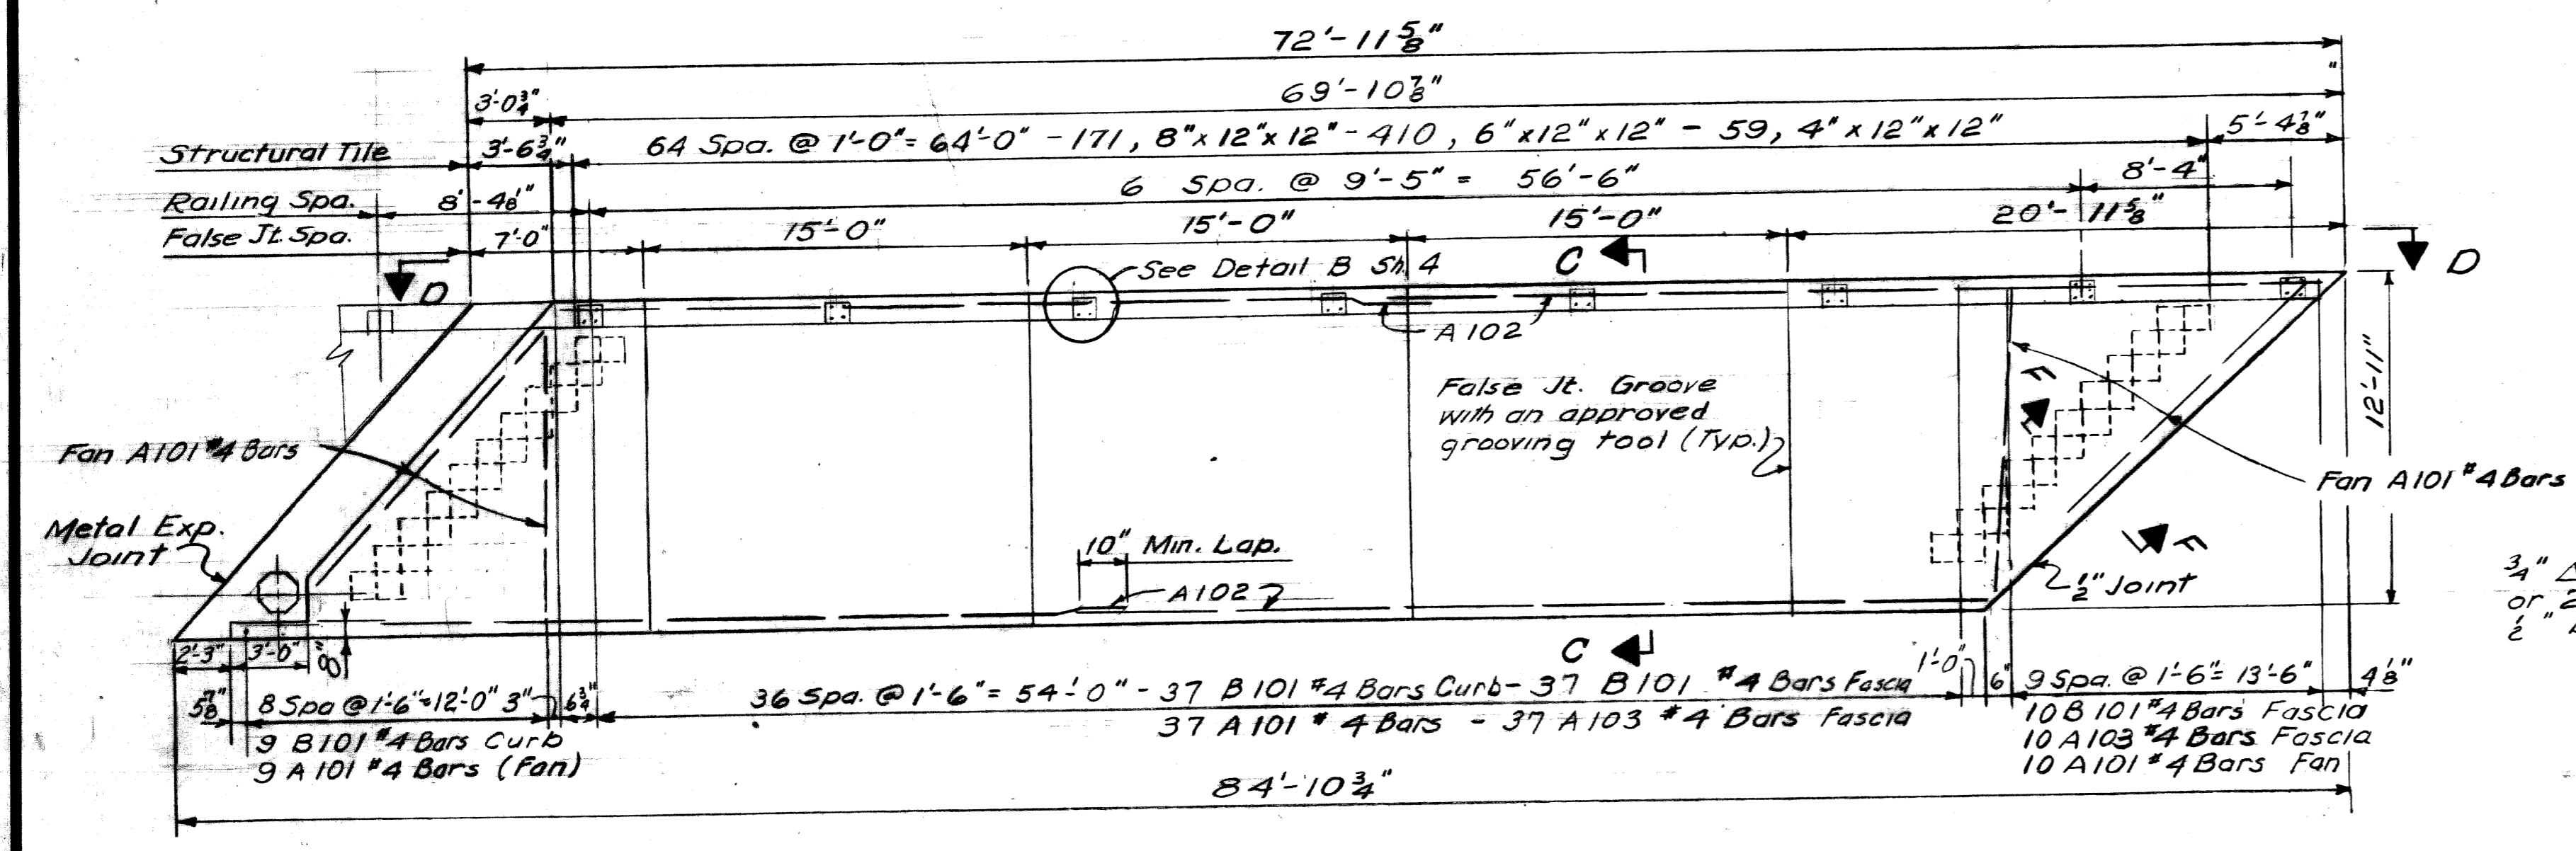 72'-11 5/8"
69'-10 7/8"
"
3'-0 3/4"
Structural Tile
3'-6 3/4"
64 Spa. @ 1'-0" = 64'-0" - 171, 8" x 12" x 12" - 410, 6" x 12" x 12" - 59, 4" x 12" x 12"
5'-4 7/8"
Railing Spa.
8'-4 1/8"
6 Spa. @ 9'-5" = 56'-6"
8'-4"
False Jt. Spa.
7'-0"
15'-0"
15'-0"
15'-0"
20'-11 5/8"
D
See Detail B Sh. 4
C
D
A102
12'-11"
False Jt. Groove
with an approved
grooving tool (Typ.)
F
Fan A101 #4 Bars
Fan A101 #4 Bars
Metal Exp.
Joint
10" Min. Lap.
A102
F
1/2" Joint
3/4"
or 2
1/2"
2'-3"
3'-0"
8"
C
1'-0"
5 7/8"
8 Spa @ 1'-6" = 12'-0"
3"
6 3/4"
36 Spa. @ 1'-6" = 54'-0" - 37 B101 #4 Bars Curb - 37 B101 #4 Bars Fascia
6"
9 Spa. @ 1'-6" = 13'-6"
4 1/8"
37 A101 #4 Bars - 37 A103 #4 Bars Fascia
9 B101 #4 Bars Curb
9 A101 #4 Bars (Fan)
10 B101 #4 Bars Fascia
10 A103 #4 Bars Fascia
10 A101 #4 Bars Fan
84'-10 3/4"